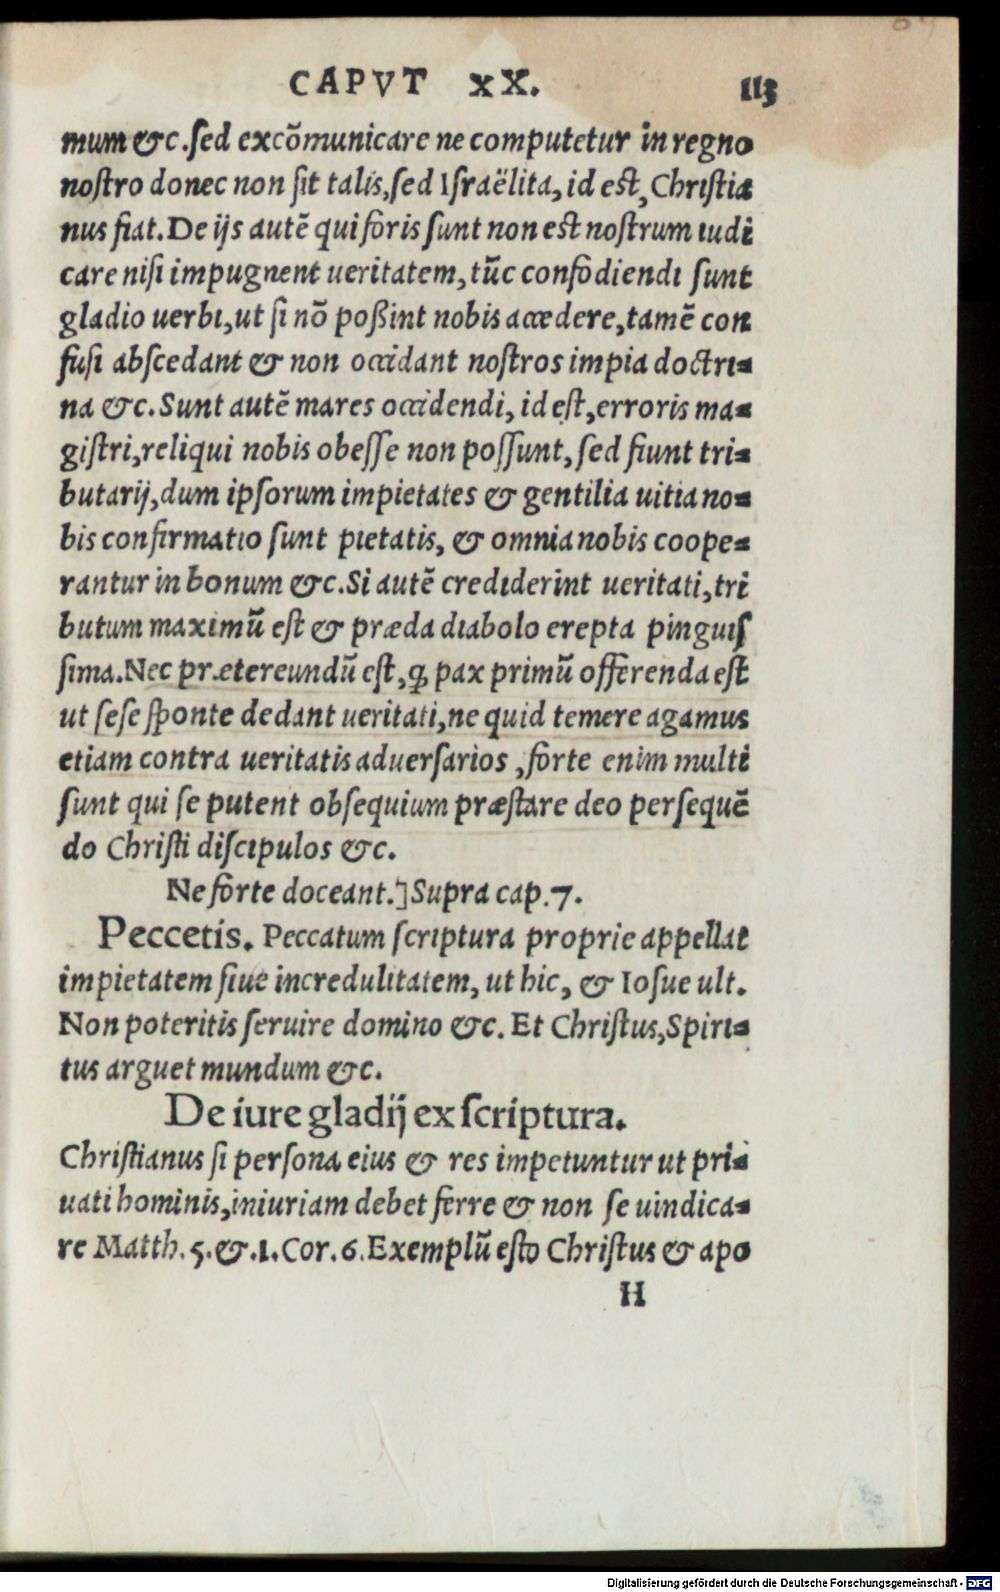 CAPVT XX. 113
mum &c. sed excōmunicare ne computetur in regno
nostro donec non sit talis, sed Israëlita, id est, Christia
nus fiat. De ijs autē qui foris sunt non est nostrum iudi
care nisi impugnent ueritatem, tūc confodiendi sunt
gladio uerbi, ut si nō poßint nobis accedere, tamē con
fusi abscedant & non occidant nostros impia doctri-
na &c. Sunt autē mares occidendi, id est, erroris ma-
gistri, reliqui nobis obesse non possunt, sed fiunt tri-
butarij, dum ipsorum impietates & gentilia uitia no-
bis confirmatio sunt pietatis, & omnia nobis coope-
rantur in bonum &c. Si autē crediderint ueritati, tri
butum maximū est & præda diabolo erepta pinguis
sima. Nec prætereundū est, ꝙ pax primū offerenda est
ut sese sponte dedant ueritati, ne quid temere agamus
etiam contra ueritatis aduersarios, forte enim multi
sunt qui se putent obsequium præstare deo persequē
do Christi discipulos &c.
Ne forte doceant.] Supra cap. 7.
Peccetis. Peccatum scriptura proprie appellat
impietatem siue incredulitatem, ut hic, & Iosue ult.
Non poteritis seruire domino &c. Et Christus, Spiri-
tus arguet mundum &c.
De iure gladij ex scriptura.
Christianus si persona eius & res impetuntur ut pri-
uati hominis, iniuriam debet ferre & non se uindica-
re Matth. 5. &. 1. Cor. 6. Exemplū esto Christus & apo
H
Digitalisierung gefördert durch die Deutsche Forschungsgemeinschaft - DFG